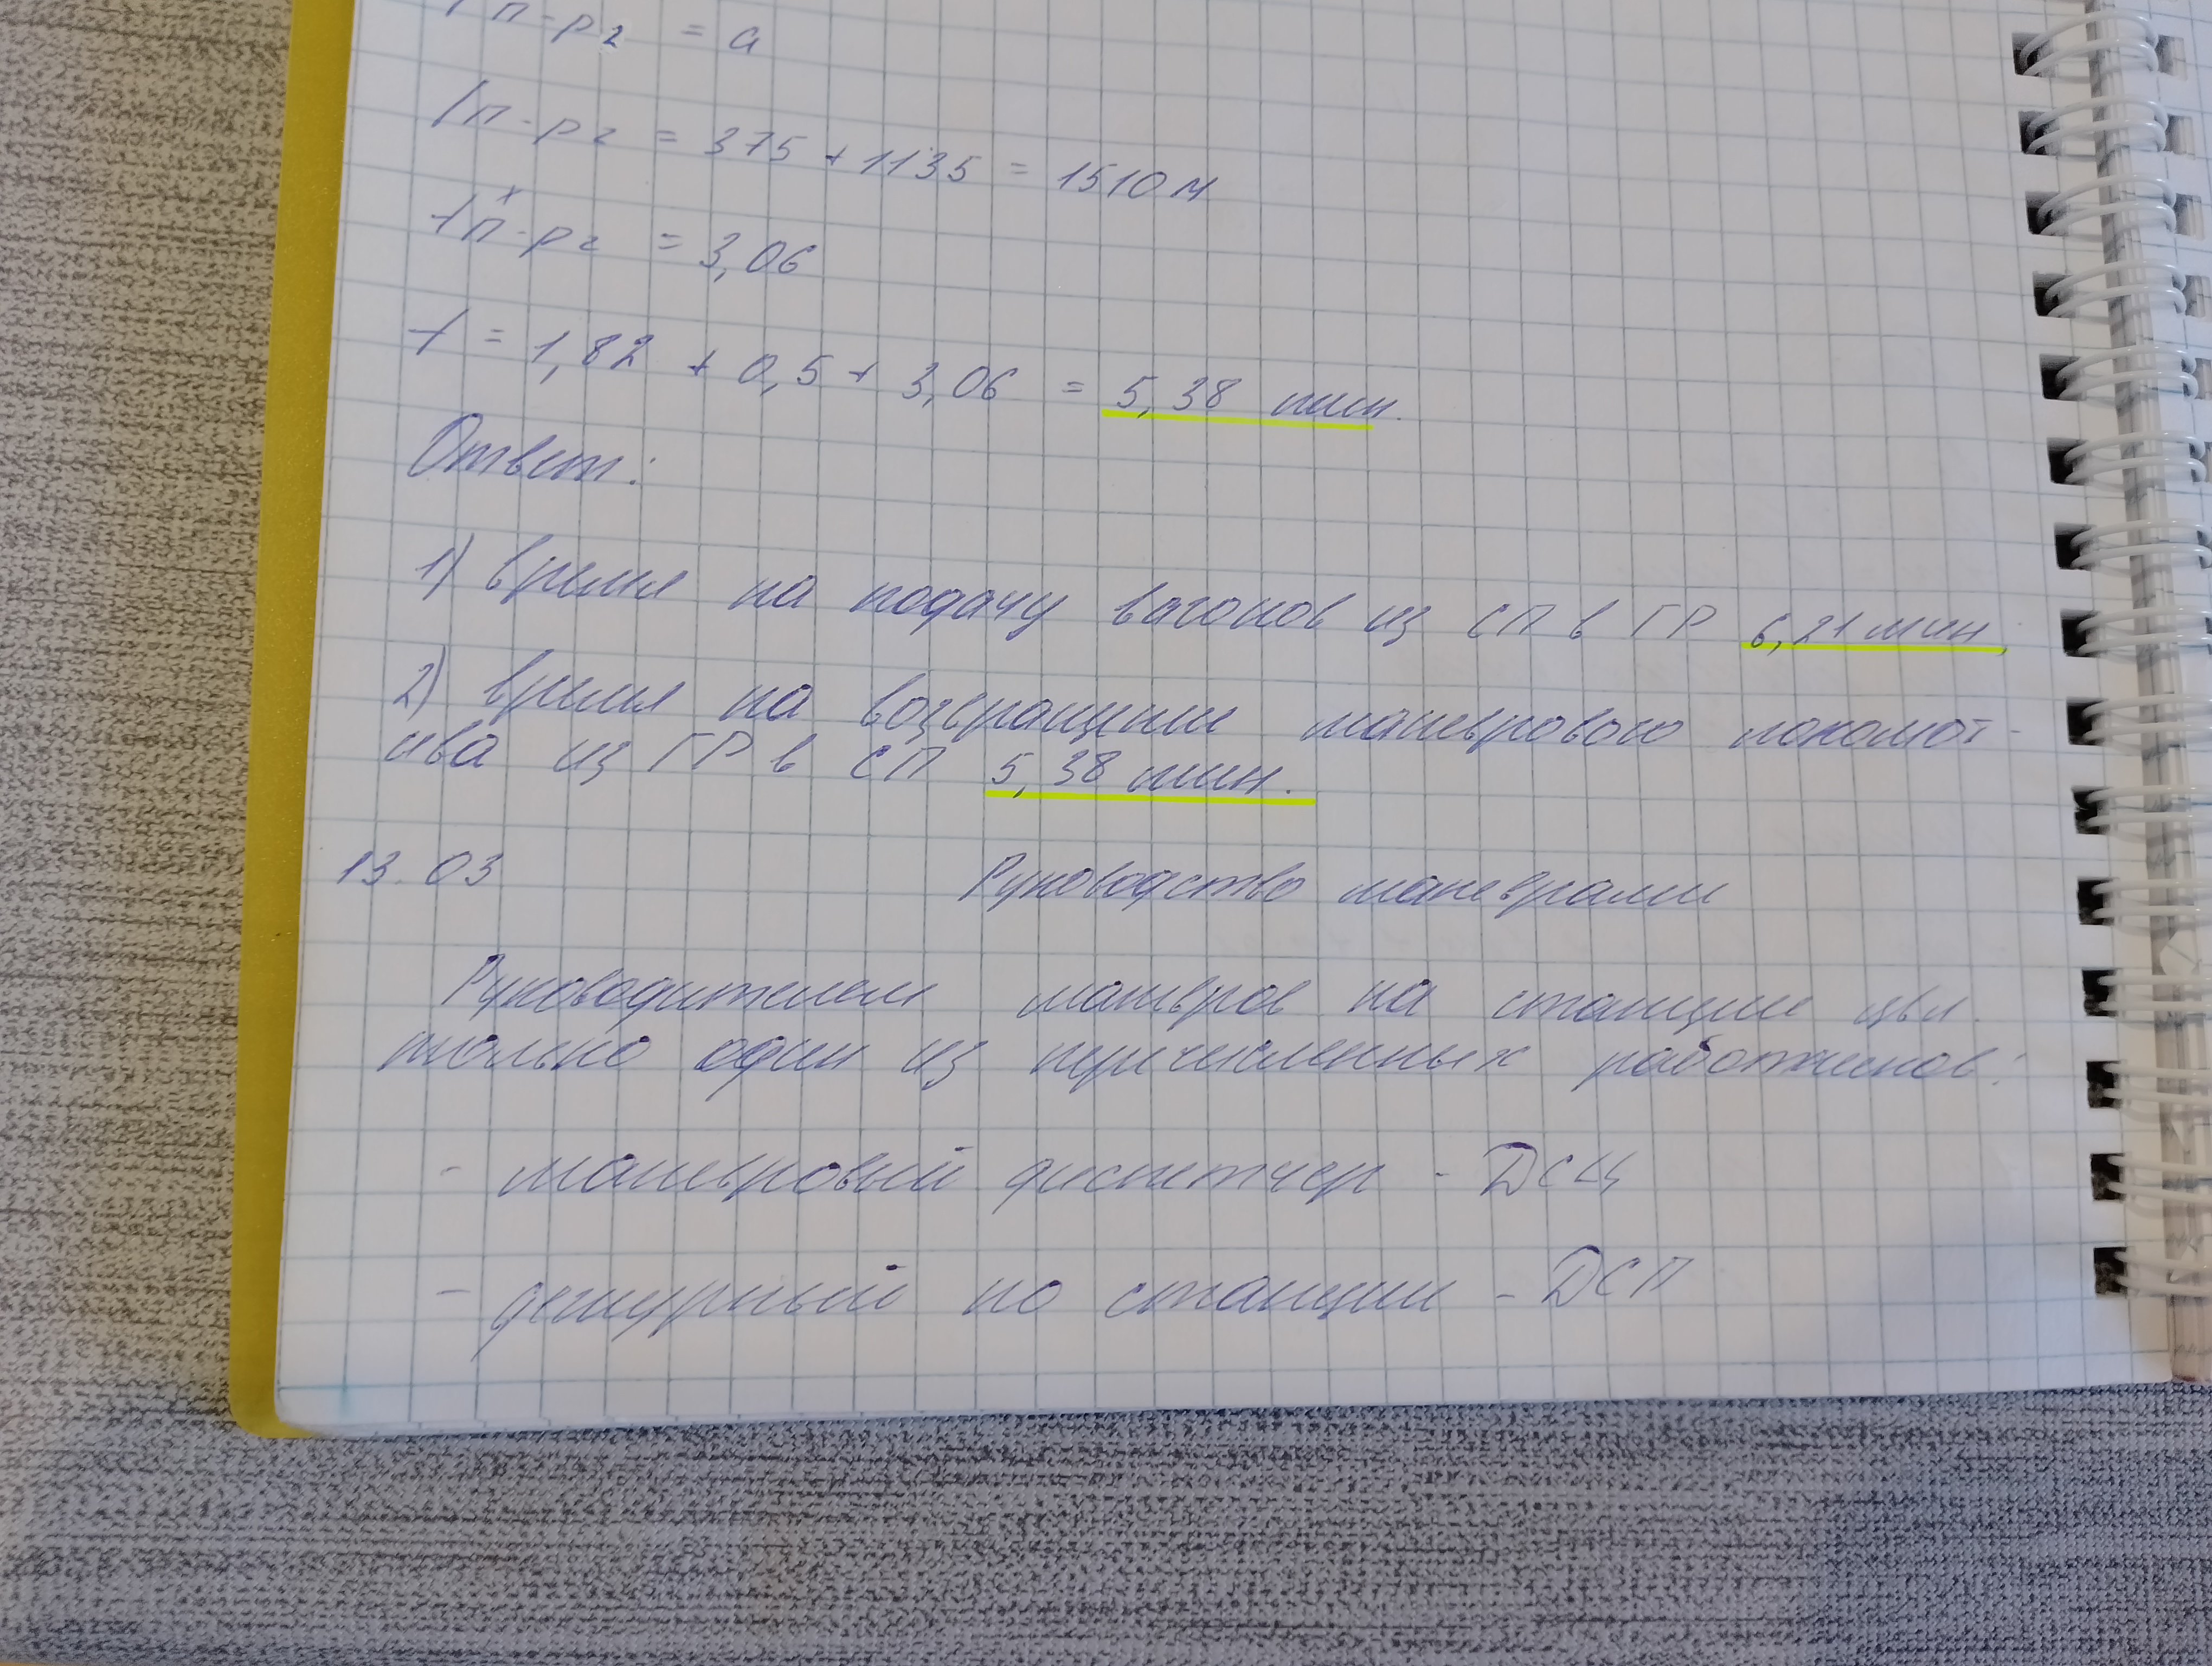 п-рг = a
lп-рг = 375 + 1135 = 1510 м
tˣп-рг = 3,06
t = 1,82 + 0,5 + 3,06 = 5,38 мин.
Ответ:
1) время на подачу вагонов из СП в ГР 6,21 мин.
2) время на возвращение маневрового локомот-
ива из ГР в СП 5,38 мин.
13.03 Руководство маневрами
Руководителем маневров на станции явл.
только один из перечисленных работников:
- маневровый диспетчер - ДСЦ
- дежурный по станции - ДСП